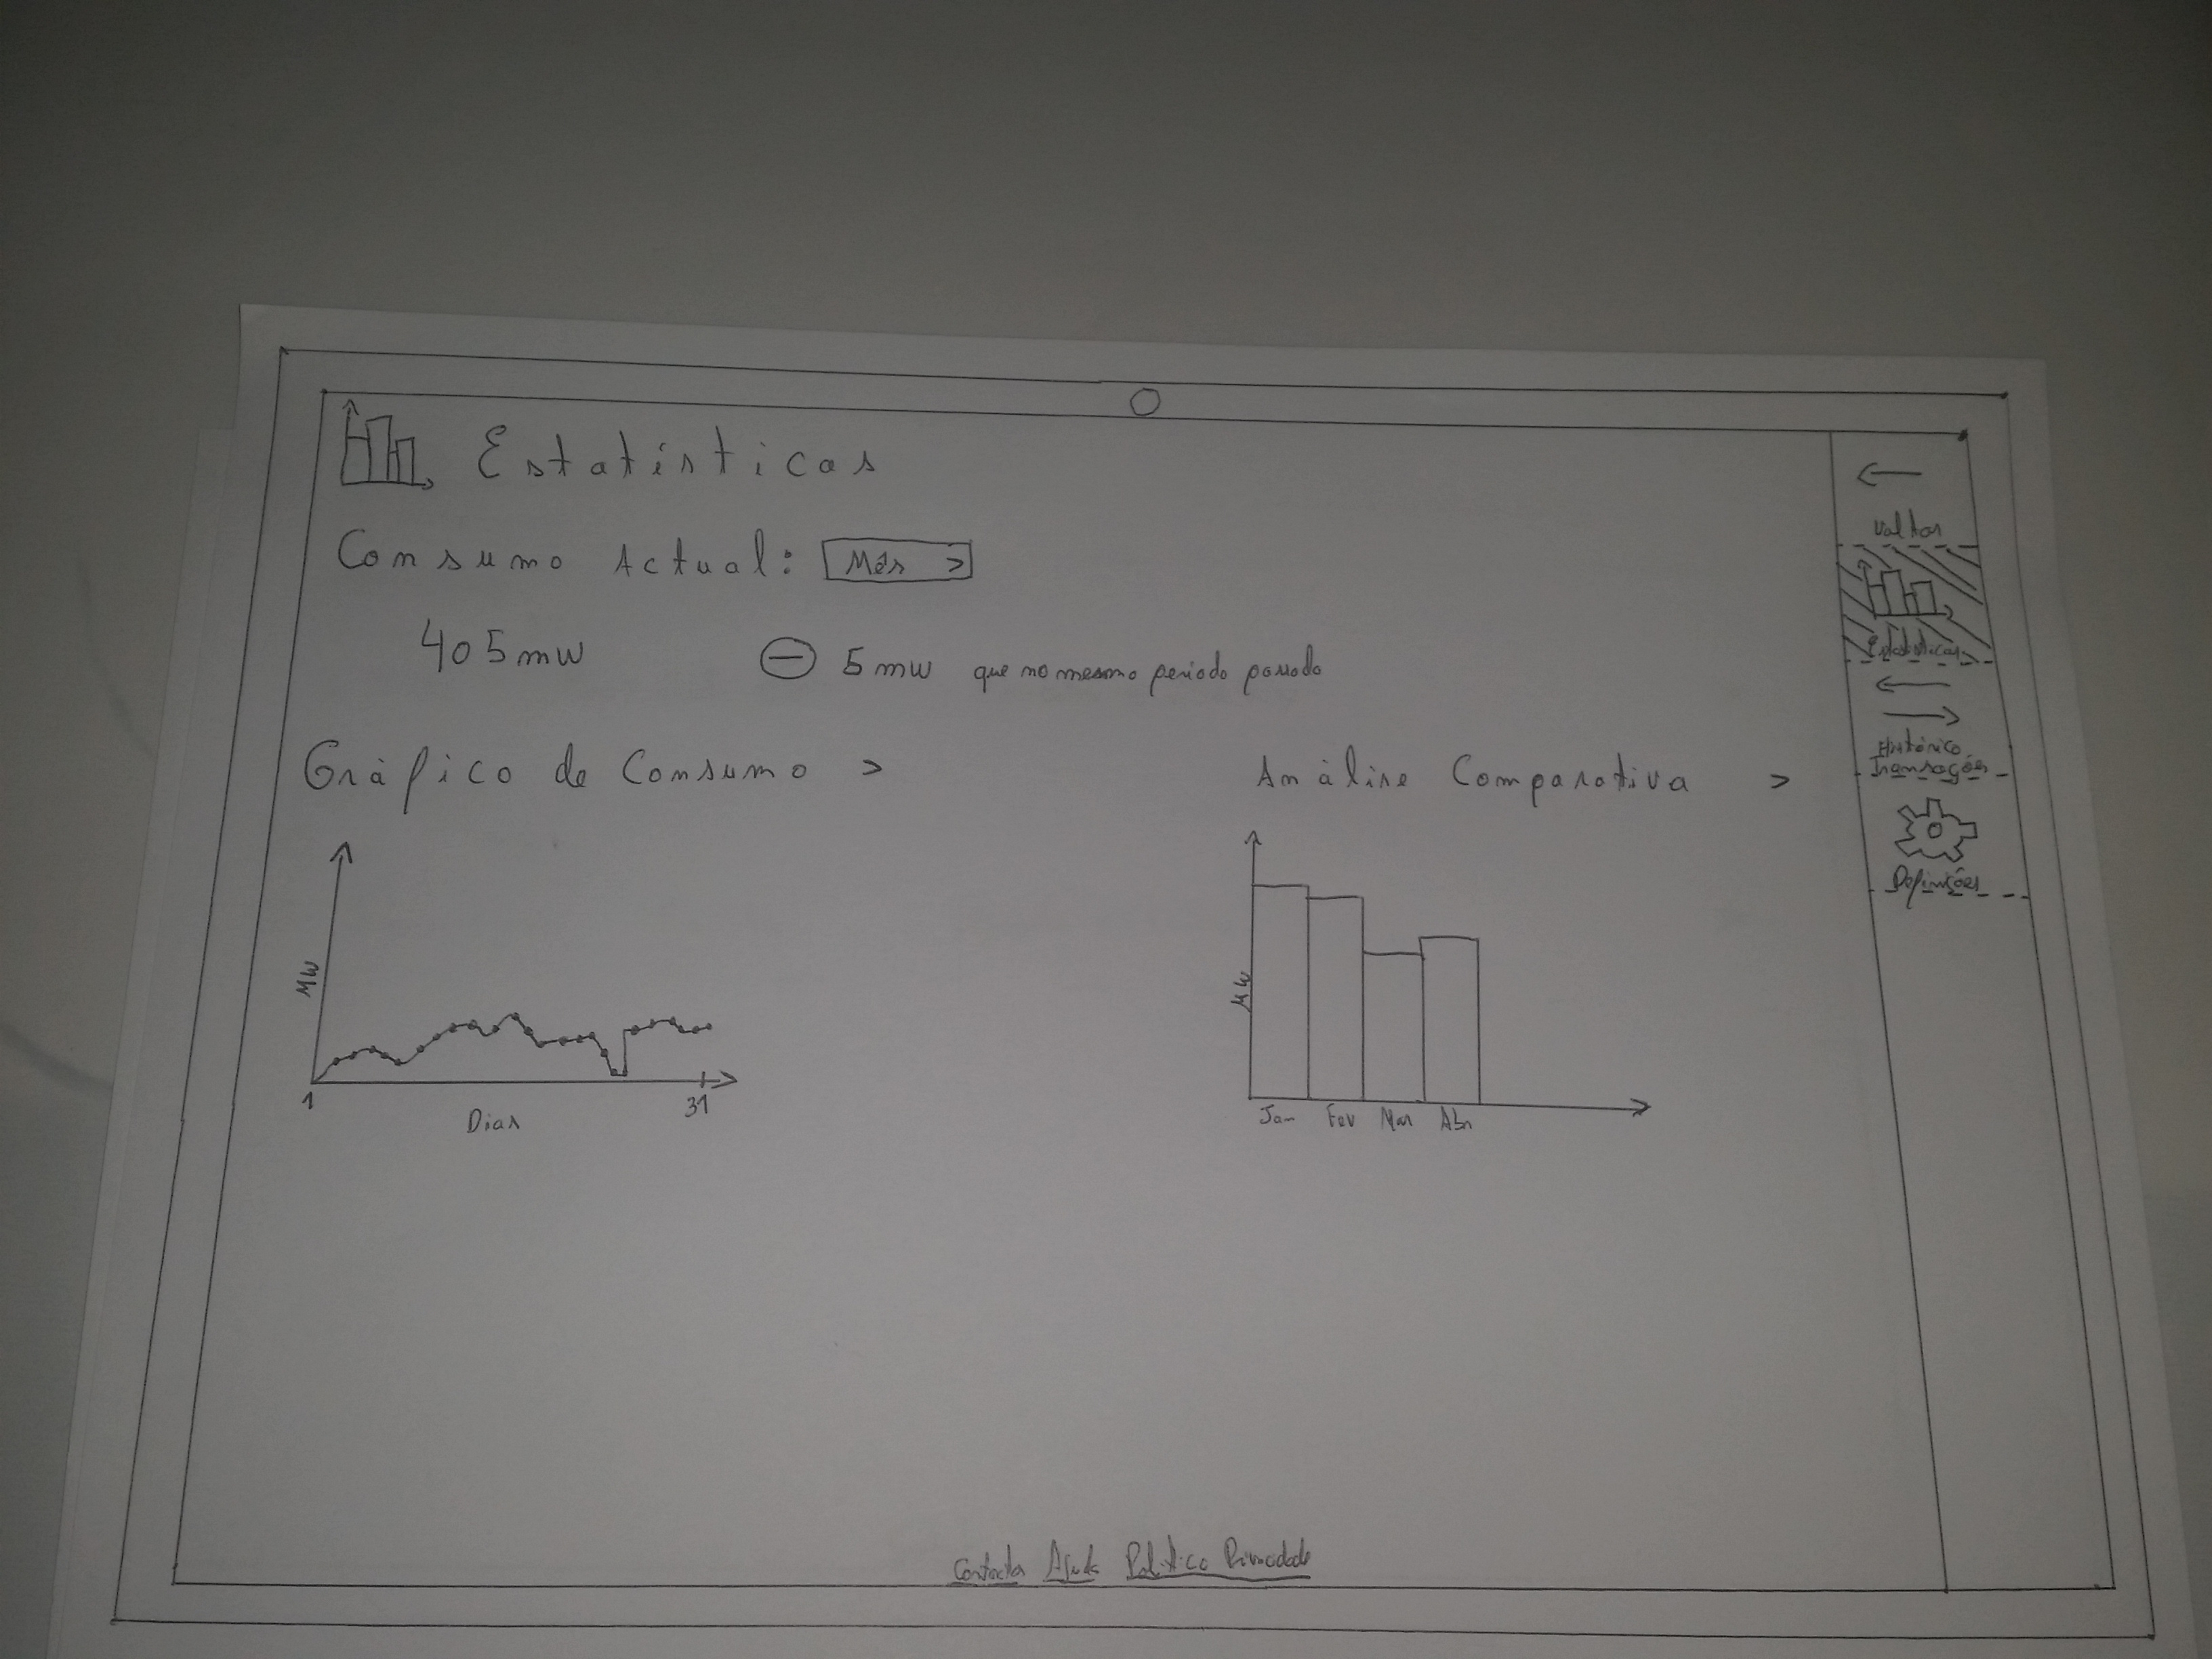 Estatísticas
Consumo Actual: Mês >
405 mW
- 5 mW que no mesmo periodo passado
Gráfico de Consumo >
Análise Comparativa >
mW
1
31
Dias
mW
Jan Fev Mar Abr
Voltar
Estatísticas
Histórico
Transações
Definições
Contacta Ajuda Politica Privacidade